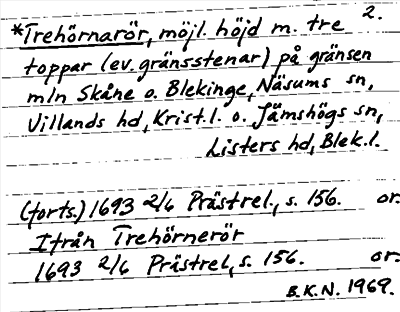 2.
*Trehörnarör, möjl. höjd m. tre
toppar (ev. gränsstenar) på gränsen
mln Skåne o. Blekinge, Näsums sn,
Villands hd, Krist.l. o. Jämshögs sn,
Listers hd, Blek.l.
(forts.) 1693 2/6 Prästrel., s. 156. or.
Ifrån Trehörnerör
1693 2/6 Prästrel, s. 156. or.
B.K.N. 1969.